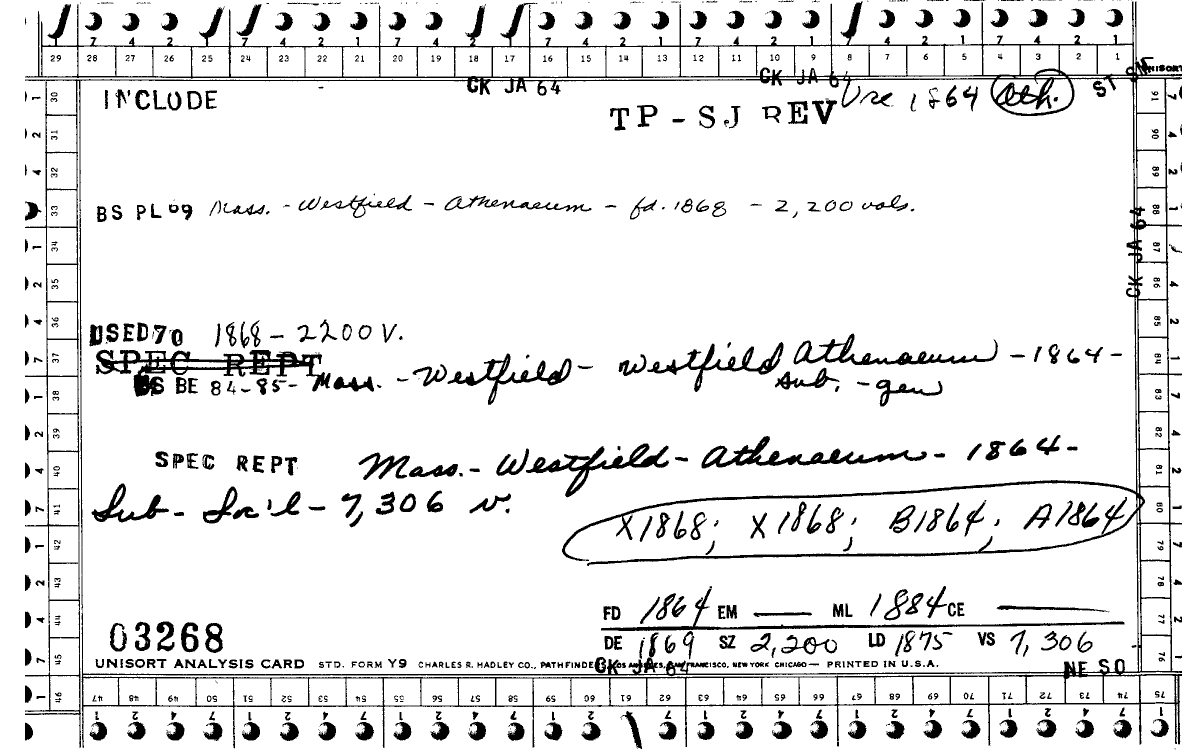 7 4 2 1 7 4 2 1 7 4 2 1 7 4 2 1 7 4 2 1 7 4 2 1
29 28 27 26 25 24 23 22 21 20 19 18 17 16 15 14 13 12 11 10 9 8 7 6 5 4 3 2 1
CK JA 64 CK JA 64 UNISORT
INCLUDE
TP - SJ REV Use 1864 Ath.
BS PL 69 Mass. - Westfield - Athenaeum - fd. 1868 - 2,200 vols.
CK JA 64
USED 70 1868 - 2200 V.
SPEC REPT
BS BE 84-85- Mass. - Westfield - Westfield Athenaeum - 1864 -
sub. - gen
SPEC REPT Mass. - Westfield - Athenaeum - 1864 -
Sub - Soc'l - 7,306 v.
X1868; X1868; B1864; A1864
FD 1864 EM — ML 1884 CE —
03268
DE 1869 SZ 2,200 LD 1875 VS 7,306
UNISORT ANALYSIS CARD STD. FORM Y9 CHARLES R. HADLEY CO., PATHFINDERS LOS ANGELES, SAN FRANCISCO, NEW YORK CHICAGO — PRINTED IN U.S.A.
CK JA 64 NE SO
30 31 32 33 34 35 36 37 38 39 40 41 42 43 44 45 46
91 90 89 88 87 86 85 84 83 82 81 80 79 78 77 76 75
47 48 49 50 51 52 53 54 55 56 57 58 59 60 61 62 63 64 65 66 67 68 69 70 71 72 73 74